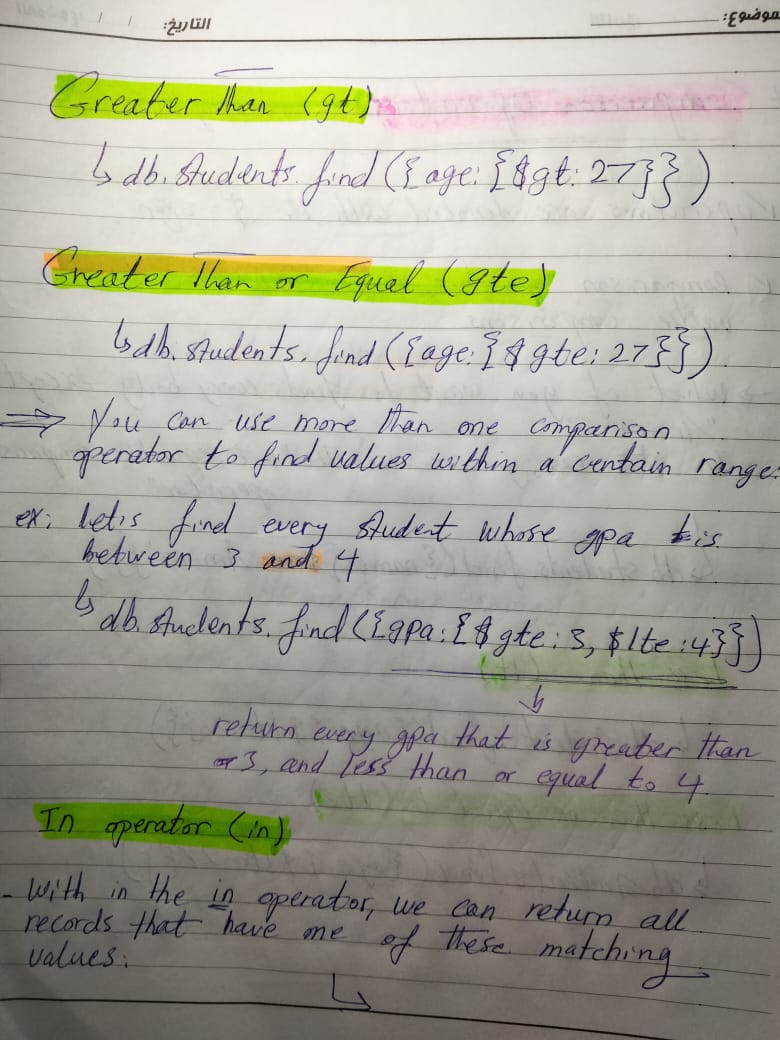 الموضوع:
التاريخ: / /
Greater than (gt)
↳ db.students.find({age:{$gt:27}})
Greater than or Equal (gte)
↳ db.students.find({age:{$gte:27}})
⇒ You can use more than one comparison
operator to find values within a certain range:
ex: let's find every student whose gpa is
between 3 and 4
↳ db.students.find({gpa:{$gte:3,$lte:4}})
↓
return every gpa that is greater than
3, and less than or equal to 4.
In operator (in)
- With in the in operator, we can return all
records that have one of these matching
values:
↳